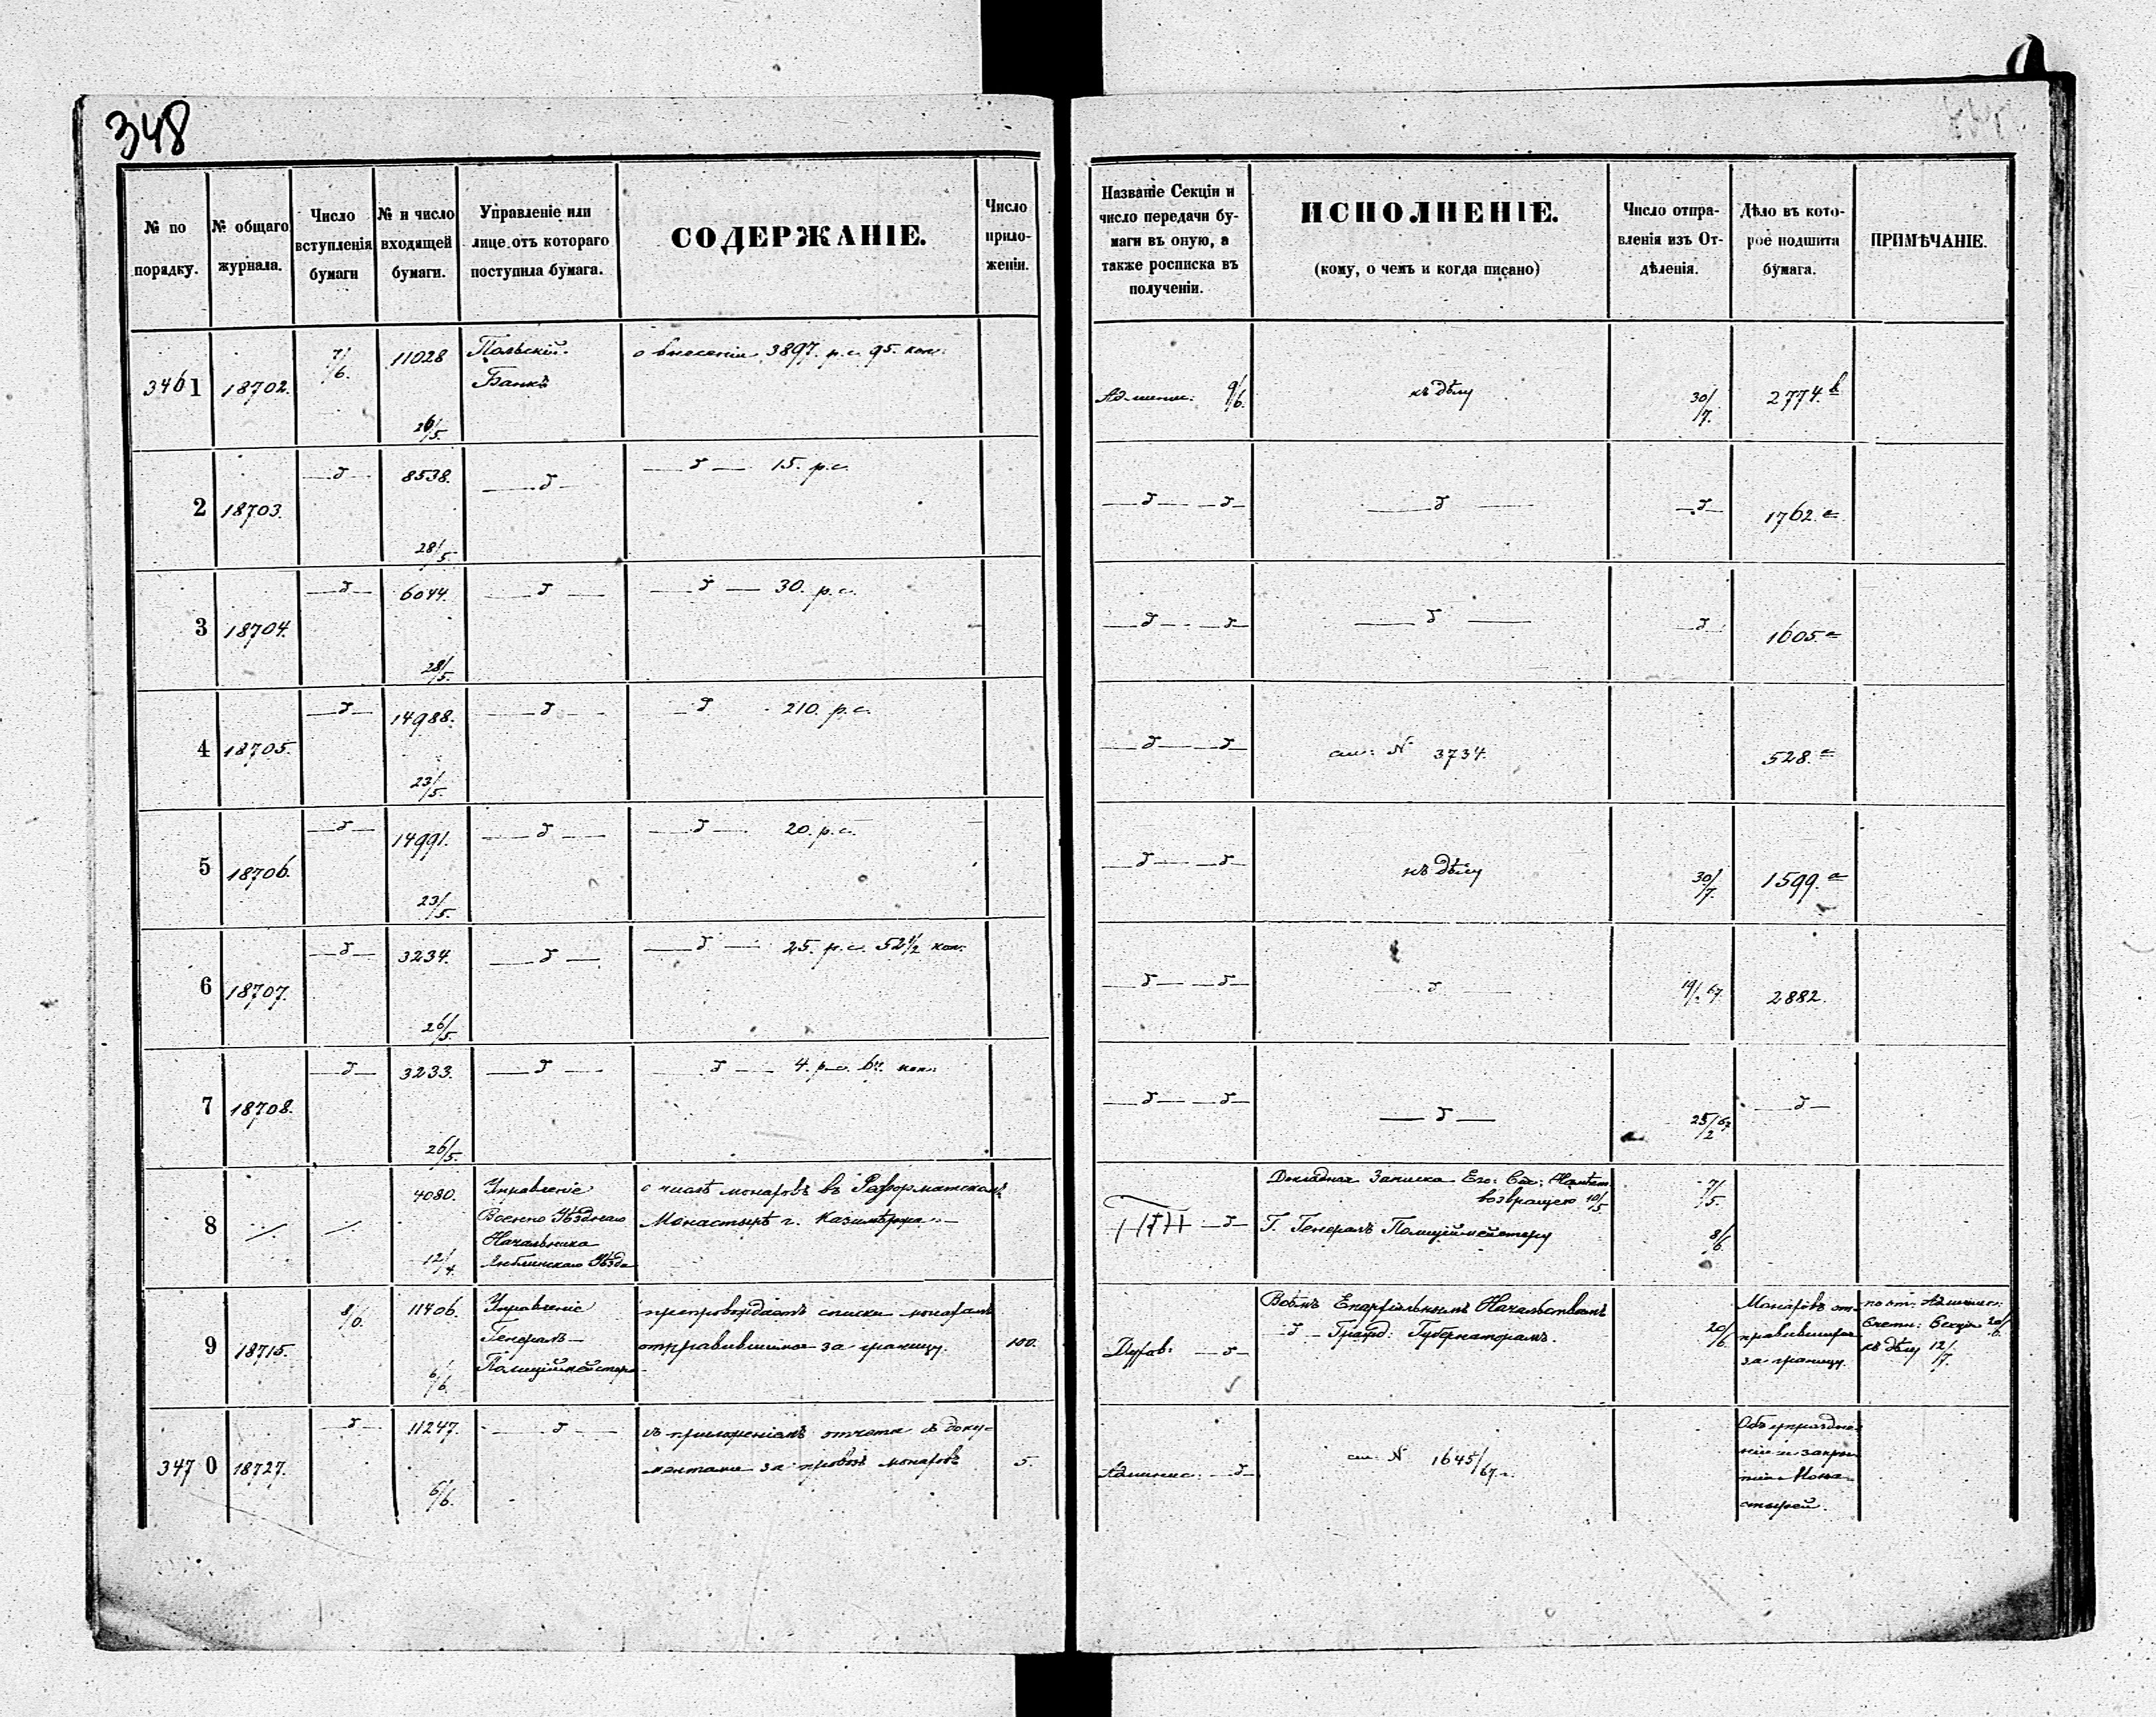 348
№ по порядку.
№ общаго журнала.
Число вступленія бумаги
№ и число входящей бумаги.
Управленіе или лице, отъ котораго поступила бумага.
СОДЕРЖАНІЕ.
Число приложеніи.
Названіе Секціи и
число передачи бу-
маги въ оную, а
также росписка въ
полученіи.
ИСПОЛНЕНІЕ.
(кому, о чемъ и когда писано)
Число отпра-
вленія изъ От-
дѣленія.
Дѣло въ кото-
рое подшита
бумага.
ПРИМѢЧАНІЕ.
3461 18702. 7/6. 11028 26/5. Польскій Банкъ о внесеніи 3897. р.с. 95. коп. Админис. 9/6. къ дѣлу 30/7. 2774.в
2 18703. —д— 8538. 28/5. —д— —д— 15. р.с. —д— —д— —д— —д— 1762.а
3 18704. —д— 6044. 28/5. —д— —д— 30. р.с. —д— —д— —д— —д— 1605.а
4 18705. —д— 14988. 23/5. —д— —д— 210. р.с. —д— —д— см: N 3734. 528.а
5 18706. —д— 14991. 23/5. —д— —д— 20. р.с. —д— —д— къ дѣлу 30/7. 1599.а
6 18707. —д— 3234. 26/5. —д— —д— 25. р.с. 52½ коп. —д— —д— —д— 2882.
7 18708. —д— 3233. 26/5. —д— —д— 4. р.с. коп. —д— —д— —д— 25/2 67 —д—
8 4080. 12/4.
Управленіе
Военно Уѣзднаго
Начальника
Люблинскаго Уѣзда
о числѣ монаховъ въ Реформатскомъ
Монастырѣ г. Казимержа
—д—
Докладная Записка Его: Сія: Намѣст.
возвращено 10/5
Г. Генералъ Полиціймейстеру
7/5.
8/6.
9 18715. 8/6. 11406. 6/6.
Управленіе
Генералъ-
Полиціймейстера
препровождаетъ списки монахамъ
отправившимся за границу.
100.
Духов: —д—
Всѣмъ Епархіальнымъ Начальствамъ
—д— Гражд: Губернаторамъ.
20/6.
Монаховъ от-
правившихся
за границу.
по от. Админис:
Счетн: Секціи 20/6.
къ дѣлу 12/7.
3470 18727. —д— 11247. 6/6. —д—
съ приложеніемъ отчета съ доку-
ментами за провозъ монаховъ
5.
Админис: —д—
см. N 1645/67 г.
Объ упраздне-
ніи и закры-
тіи Мона-
стырей.